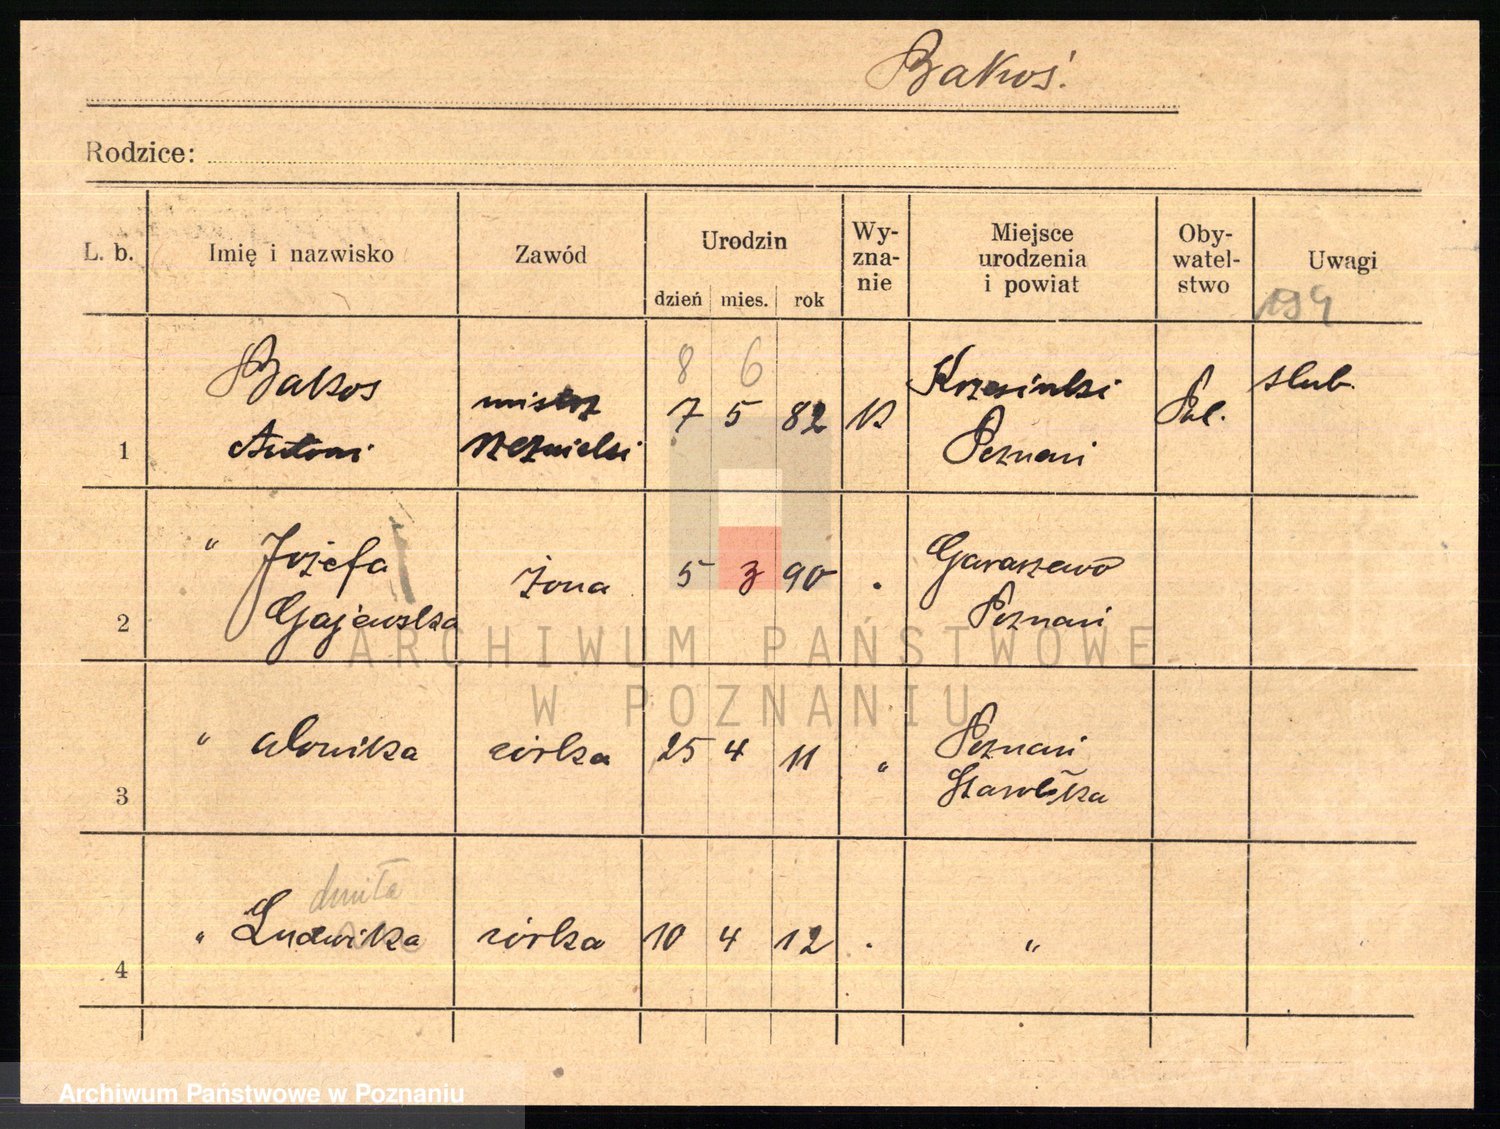 Bakoś.
Rodzice:
L. b. Imię i nazwisko Zawód Urodzin dzień mies. rok Wy-zna-nie Miejsce urodzenia i powiat Oby-watel-stwo Uwagi
194
8 6
Bakos mistrz 7 5 82 K Krzesinki Pol. slub.
1 Antoni rzeźnicki Poznań
" Józefa żona 5 3 90 " Garaszewo
2 Gajewska Poznań
ARCHIWUM PAŃSTWOWE
W POZNANIU
" Monika córka 25 4 11 " Poznań
3 Starołęka
dmiła
" Ludwika córka 10 4 12 " "
4
Archiwum Państwowe w Poznaniu